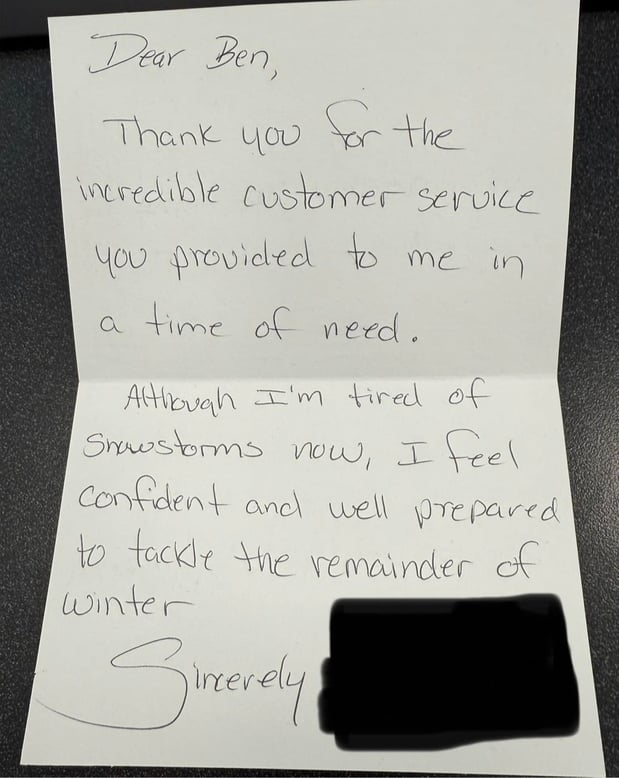 Dear Ben,
Thank you for the
incredible customer service
you provided to me in
a time of need.
Although I'm tired of
Snowstorms now, I feel
confident and well prepared
to tackle the remainder of
winter
Sincerely